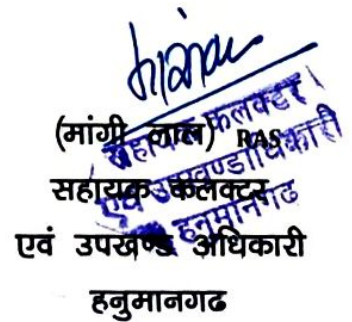 (मांगी लाल) RAS
सहायक कलक्टर
एवं उपखण्ड अधिकारी
हनुमानगढ
सहायक कलक्टर
एवं उपखण्डाधिकारी
हनुमानगढ